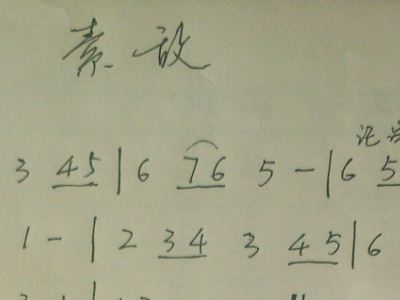 素敌
3 45 | 6 76 5 - | 6 5
1 - | 2 34 3 45 | 6